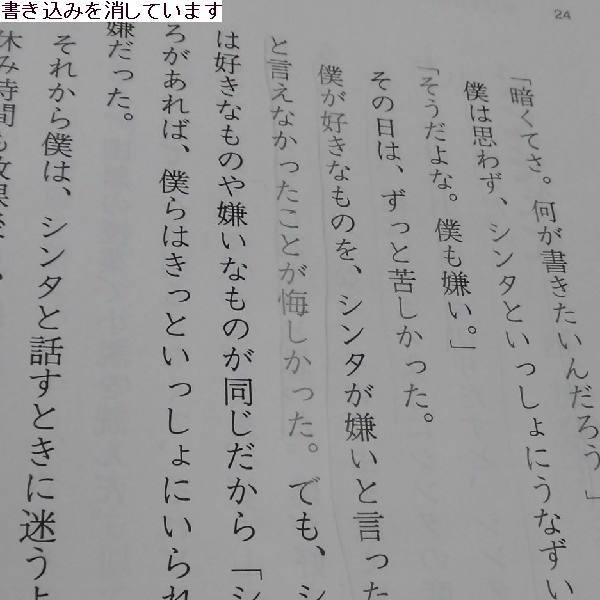 書き込みを消しています
24
「暗くてさ。何が書きたいんだろう」
僕は思わず、シンタといっしょにうなずい
「そうだよな。僕も嫌い。」
その日は、ずっと苦しかった。
僕が好きなものを、シンタが嫌いと言った
と言えなかったことが悔しかった。でも、シ
は好きなものや嫌いなものが同じだから「シ
ろがあれば、僕らはきっといっしょにいられ
嫌だった。
それから僕は、シンタと話すときに迷うよ
休み時間も放課後も